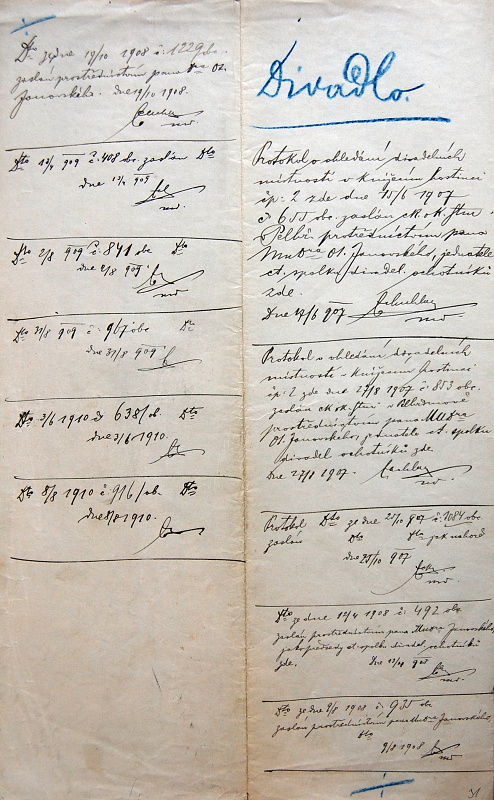 Dto ze dne 19/10 1908 č. 1229 obc.
zaslán prostřednictvím pana Dra Ot.
Janovského. dne 19/10 1908.
mp.
Dto 13/7 909 č. 408 obc. zaslán Dto
dne 13/7 909
mp.
Dto 2/8 909 č. 841 obc Dto
dne 2/8 909
mp.
Dto 31/8 909 č. 967 obc Dto
dne 31/8 909
Dto 3/6 1910 č. 638/ob. Dto
dne 3/6 1910.
Dto 8/8 1910 č. 916/ob. Dto
dne 8/8 1910.
Divadlo.
Protokol o ohledání divadelních
místností v knížecím hostinci
čp. 2 zde dne 15/6 1907
č 655 obc. zaslán ck. ok. ftm.
Pelhř. prostřednictvím pana
Mudra Ot. Janovského, jednatele
ct. spolku divadel. ochotníků
zde.
Dne 17/6 907
mp.
Protokol o ohledání divadelních
místností v knížecím hostinci
čp. 2 zde dne 27/8 1907 č 853 obc.
zaslán ck. ok. ftm. v Pelhřimově
prostřednictvím pana Mudra
Ot. Janovského, jednatele ct. spolku
divadel. ochotníků zde.
Dne 27/8 1907.
mp.
Protokol Dto ze dne 25/10 907 č. 1084 obc
zaslán Dto Dto jak nahoře
dne 25/10 907
mp.
Dto ze dne 12/4 1908 č. 492 obc
zaslán prostřednictvím pana Mudra Janovského,
jako předsedy ct. spolku divadel. ochotníků
zde. dne 908
mp.
Dto ze dne 9/8 1908 č. 935 obc
zaslán prostřednictvím pana Mudra Janovského,
Dto
9/8 1908
mp.
31